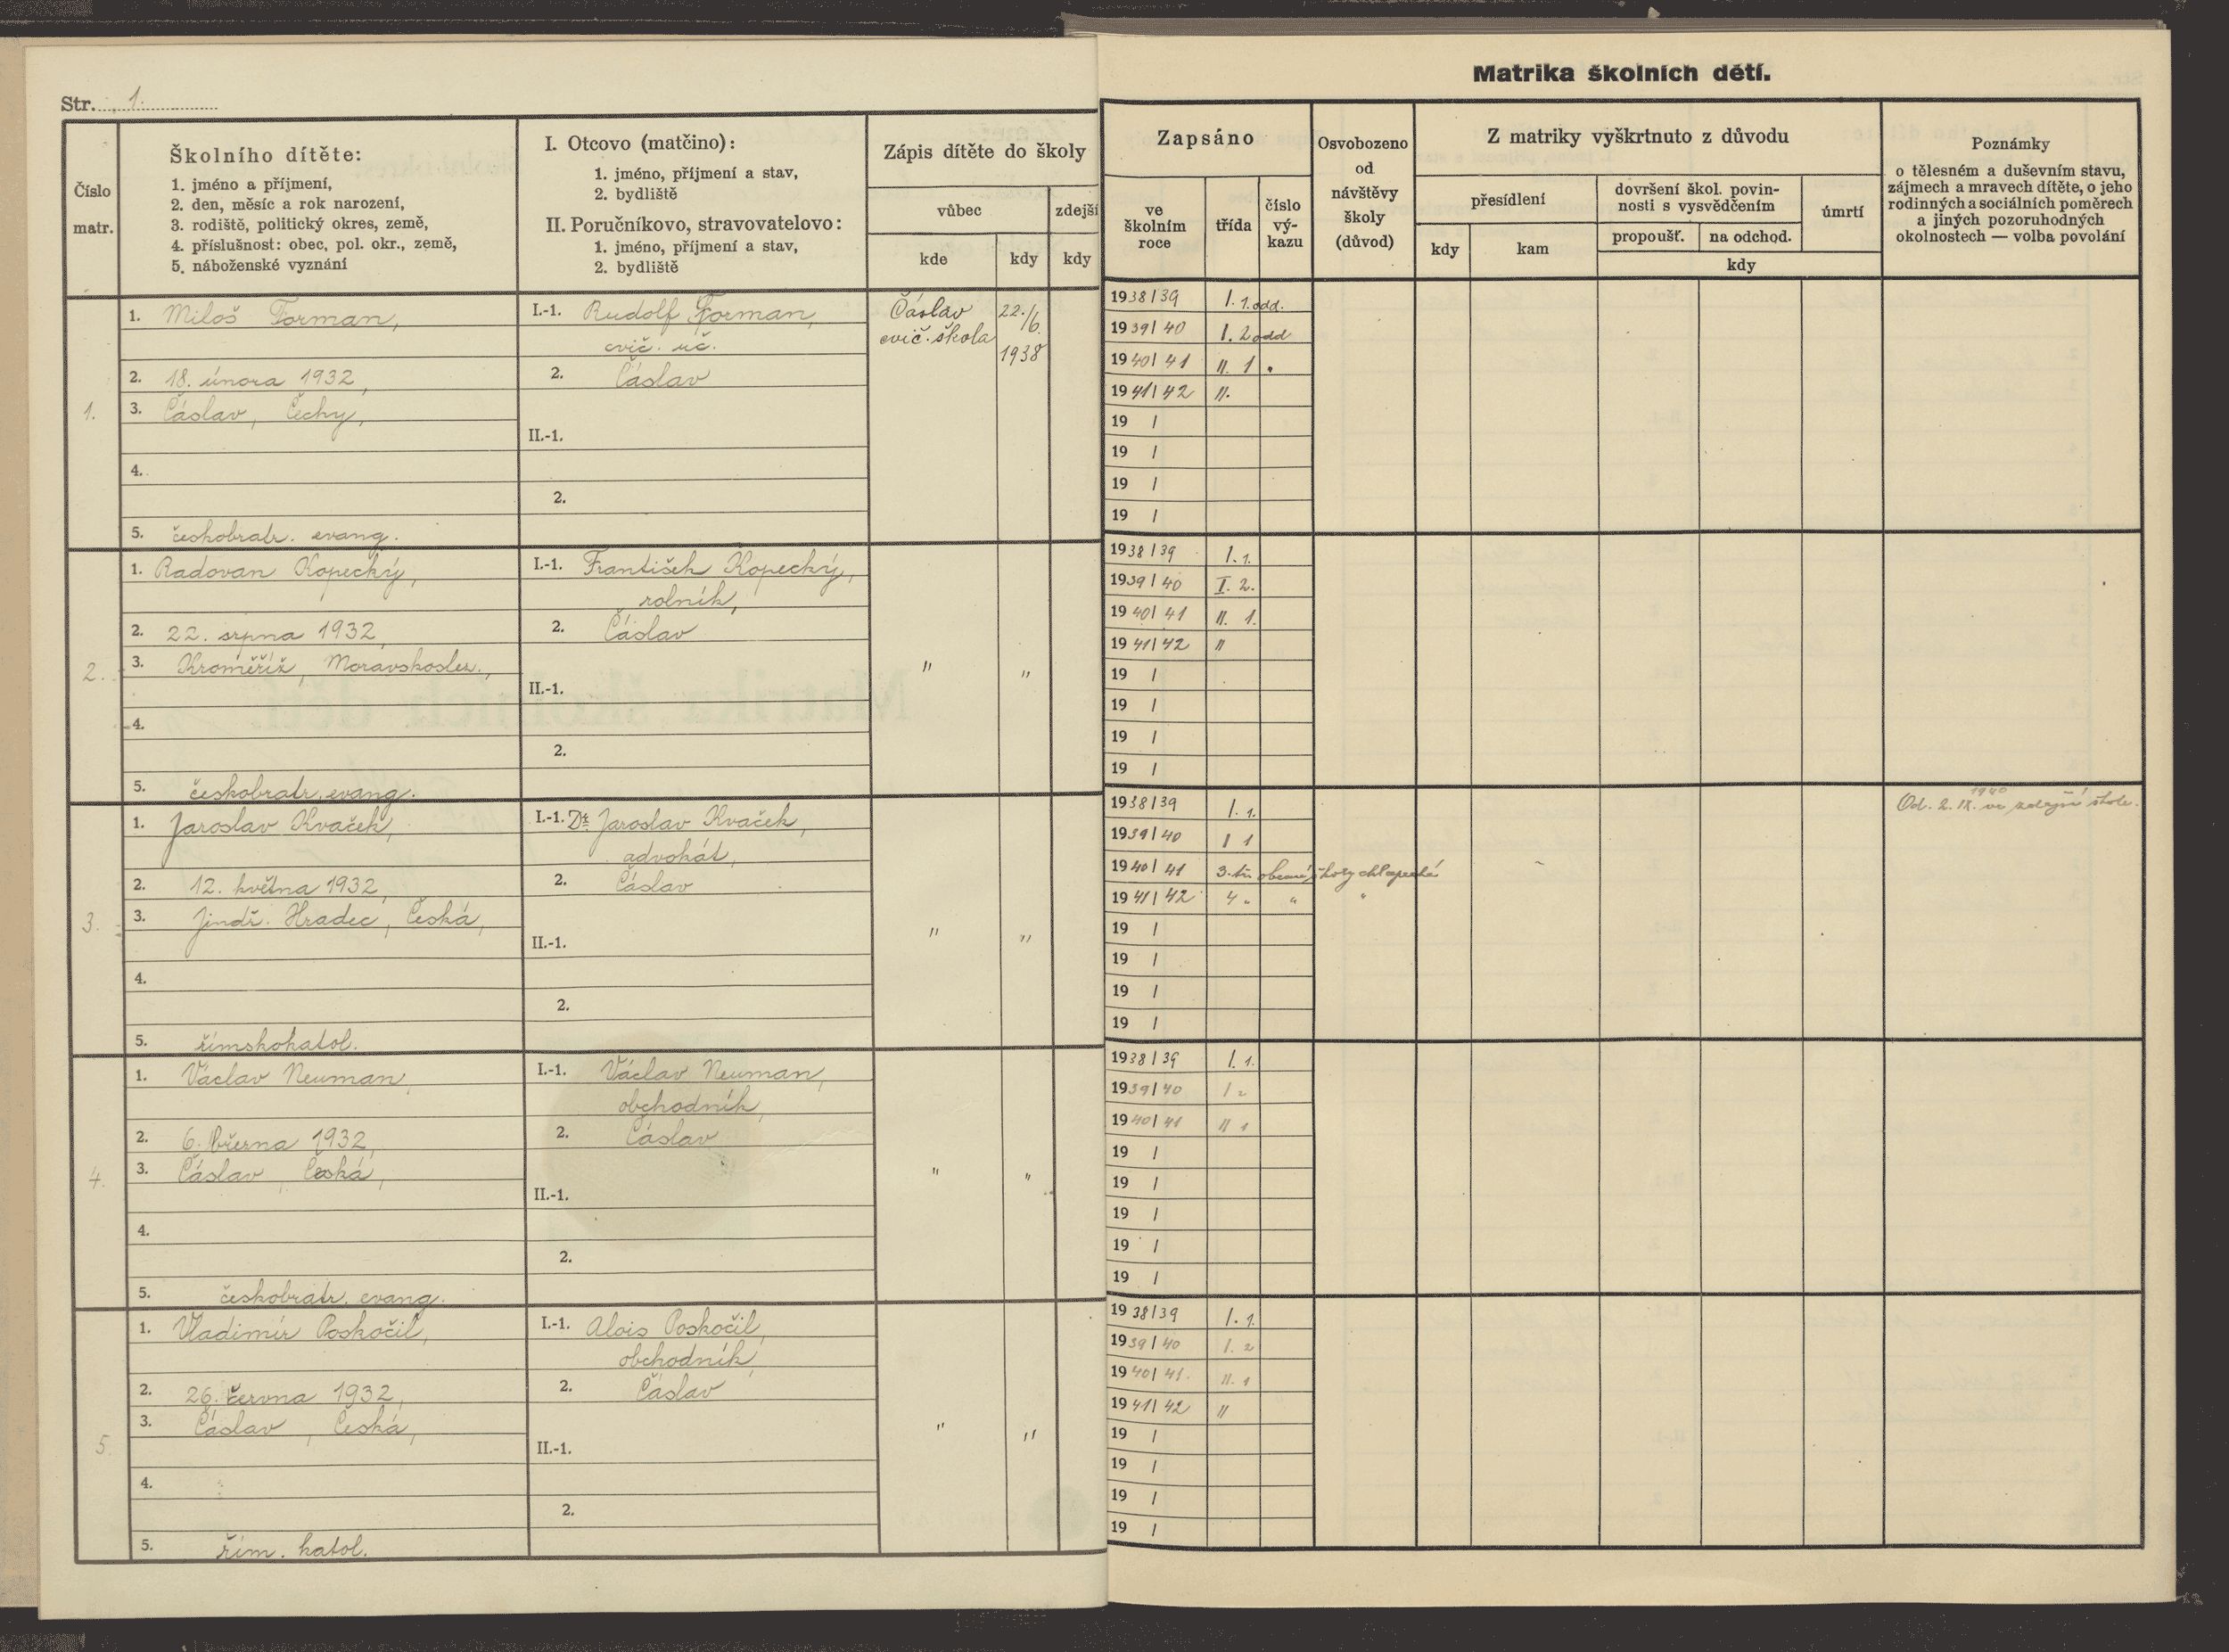 Str. 1.
Matrika školních dětí.
Číslo
matr.
Školního dítěte:
1. jméno a příjmení,
2. den, měsíc a rok narození,
3. rodiště, politický okres, země,
4. příslušnost: obec, pol. okr., země,
5. náboženské vyznání
I. Otcovo (matčino):
1. jméno, příjmení a stav,
2. bydliště
II. Poručníkovo, stravovatelovo:
1. jméno, příjmení a stav,
2. bydliště
Zápis dítěte do školy
vůbec
zdejší
kde
kdy
kdy
Zapsáno
ve
školním
roce
třída
číslo
vý-
kazu
Osvobozeno
od
návštěvy
školy
(důvod)
Z matriky vyškrtnuto z důvodu
přesídlení
kdy
kam
dovršení škol. povin-
nosti s vysvědčením
propoušť.
na odchod.
úmrtí
kdy
Poznámky
o tělesném a duševním stavu,
zájmech a mravech dítěte, o jeho
rodinných a sociálních poměrech
a jiných pozoruhodných
okolnostech — volba povolání
1.
1. Miloš Forman,
2. 18. února 1932,
3. Čáslav, Čechy,
4.
5. českobratr. evang.
I.-1. Rudolf Forman,
cvič. uč.
2. Čáslav
II.-1.
2.
Čáslav
cvič. škola
22./6.
1938
1938/39 I. 1. odd.
1939/40 I. 2 odd
1940/41 II. 1 "
1941/42 II.
19 /
19 /
19 /
19 /
2.
1. Radovan Kopecký,
2. 22. srpna 1932,
3. Kroměříž, Moravskoslez.,
4.
5. českobratr. evang.
I.-1. František Kopecký,
rolník,
2. Čáslav
II.-1.
2.
" "
1938/39 I. 1.
1939/40 I. 2.
1940/41 II. 1.
1941/42 II
19 /
19 /
19 /
19 /
3.
1. Jaroslav Kvaček,
2. 12. května 1932,
3. Jindř. Hradec, Česká,
4.
5. římskokatol.
I.-1. Dr. Jaroslav Kvaček,
advokát,
2. Čáslav
II.-1.
2.
" "
1938/39 I. 1.
1939/40 I 1
1940/41 3. tř. obecné školy chlapecké
1941/42 4 " " "
19 /
19 /
19 /
19 /
Od. 2. IX. 1940 ve zdejší škole.
4.
1. Václav Neuman,
2. 6. března 1932,
3. Čáslav, Česká,
4.
5. českobratr. evang.
I.-1. Václav Neuman,
obchodník,
2. Čáslav
II.-1.
2.
" "
1938/39 I. 1.
1939/40 I 2
1940/41 II 1
19 /
19 /
19 /
19 /
19 /
5.
1. Vladimír Poskočil,
2. 26. června 1932,
3. Čáslav, Česká,
4.
5. řím. katol.
I.-1. Alois Poskočil,
obchodník,
2. Čáslav
II.-1.
2.
" "
1938/39 I. 1.
1939/40 I. 2
1940/41. II. 1
1941/42 II
19 /
19 /
19 /
19 /